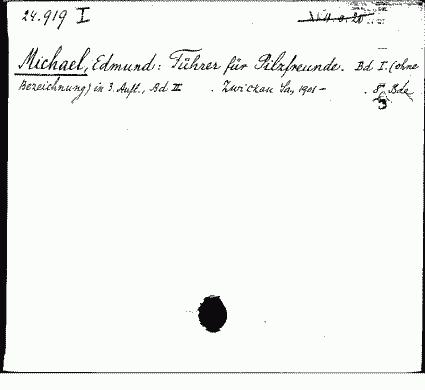 24.919 I
Michael, Edmund: Führer für Pilzfreunde. Bd I. (ohne
Bezeichnung) in 3. Aufl., Bd II . Zwickau Sa, 1901- . 8° Bde
3